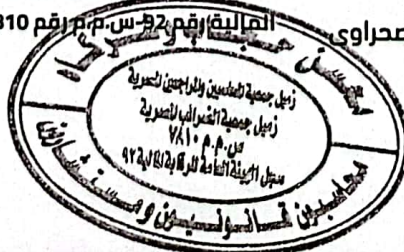 صحراوي المالية رقم 92-س.م.م رقم 310
مصطفى وشركاه
زميل جمعية المحاسبين والمراجعين المصرية
زميل جمعية الضرائب المصرية
س.م.م ٧٨١٠
سجل الهيئة العامة للرقابة المالية ٩٢
محاسبون قانونيون ومستشارون